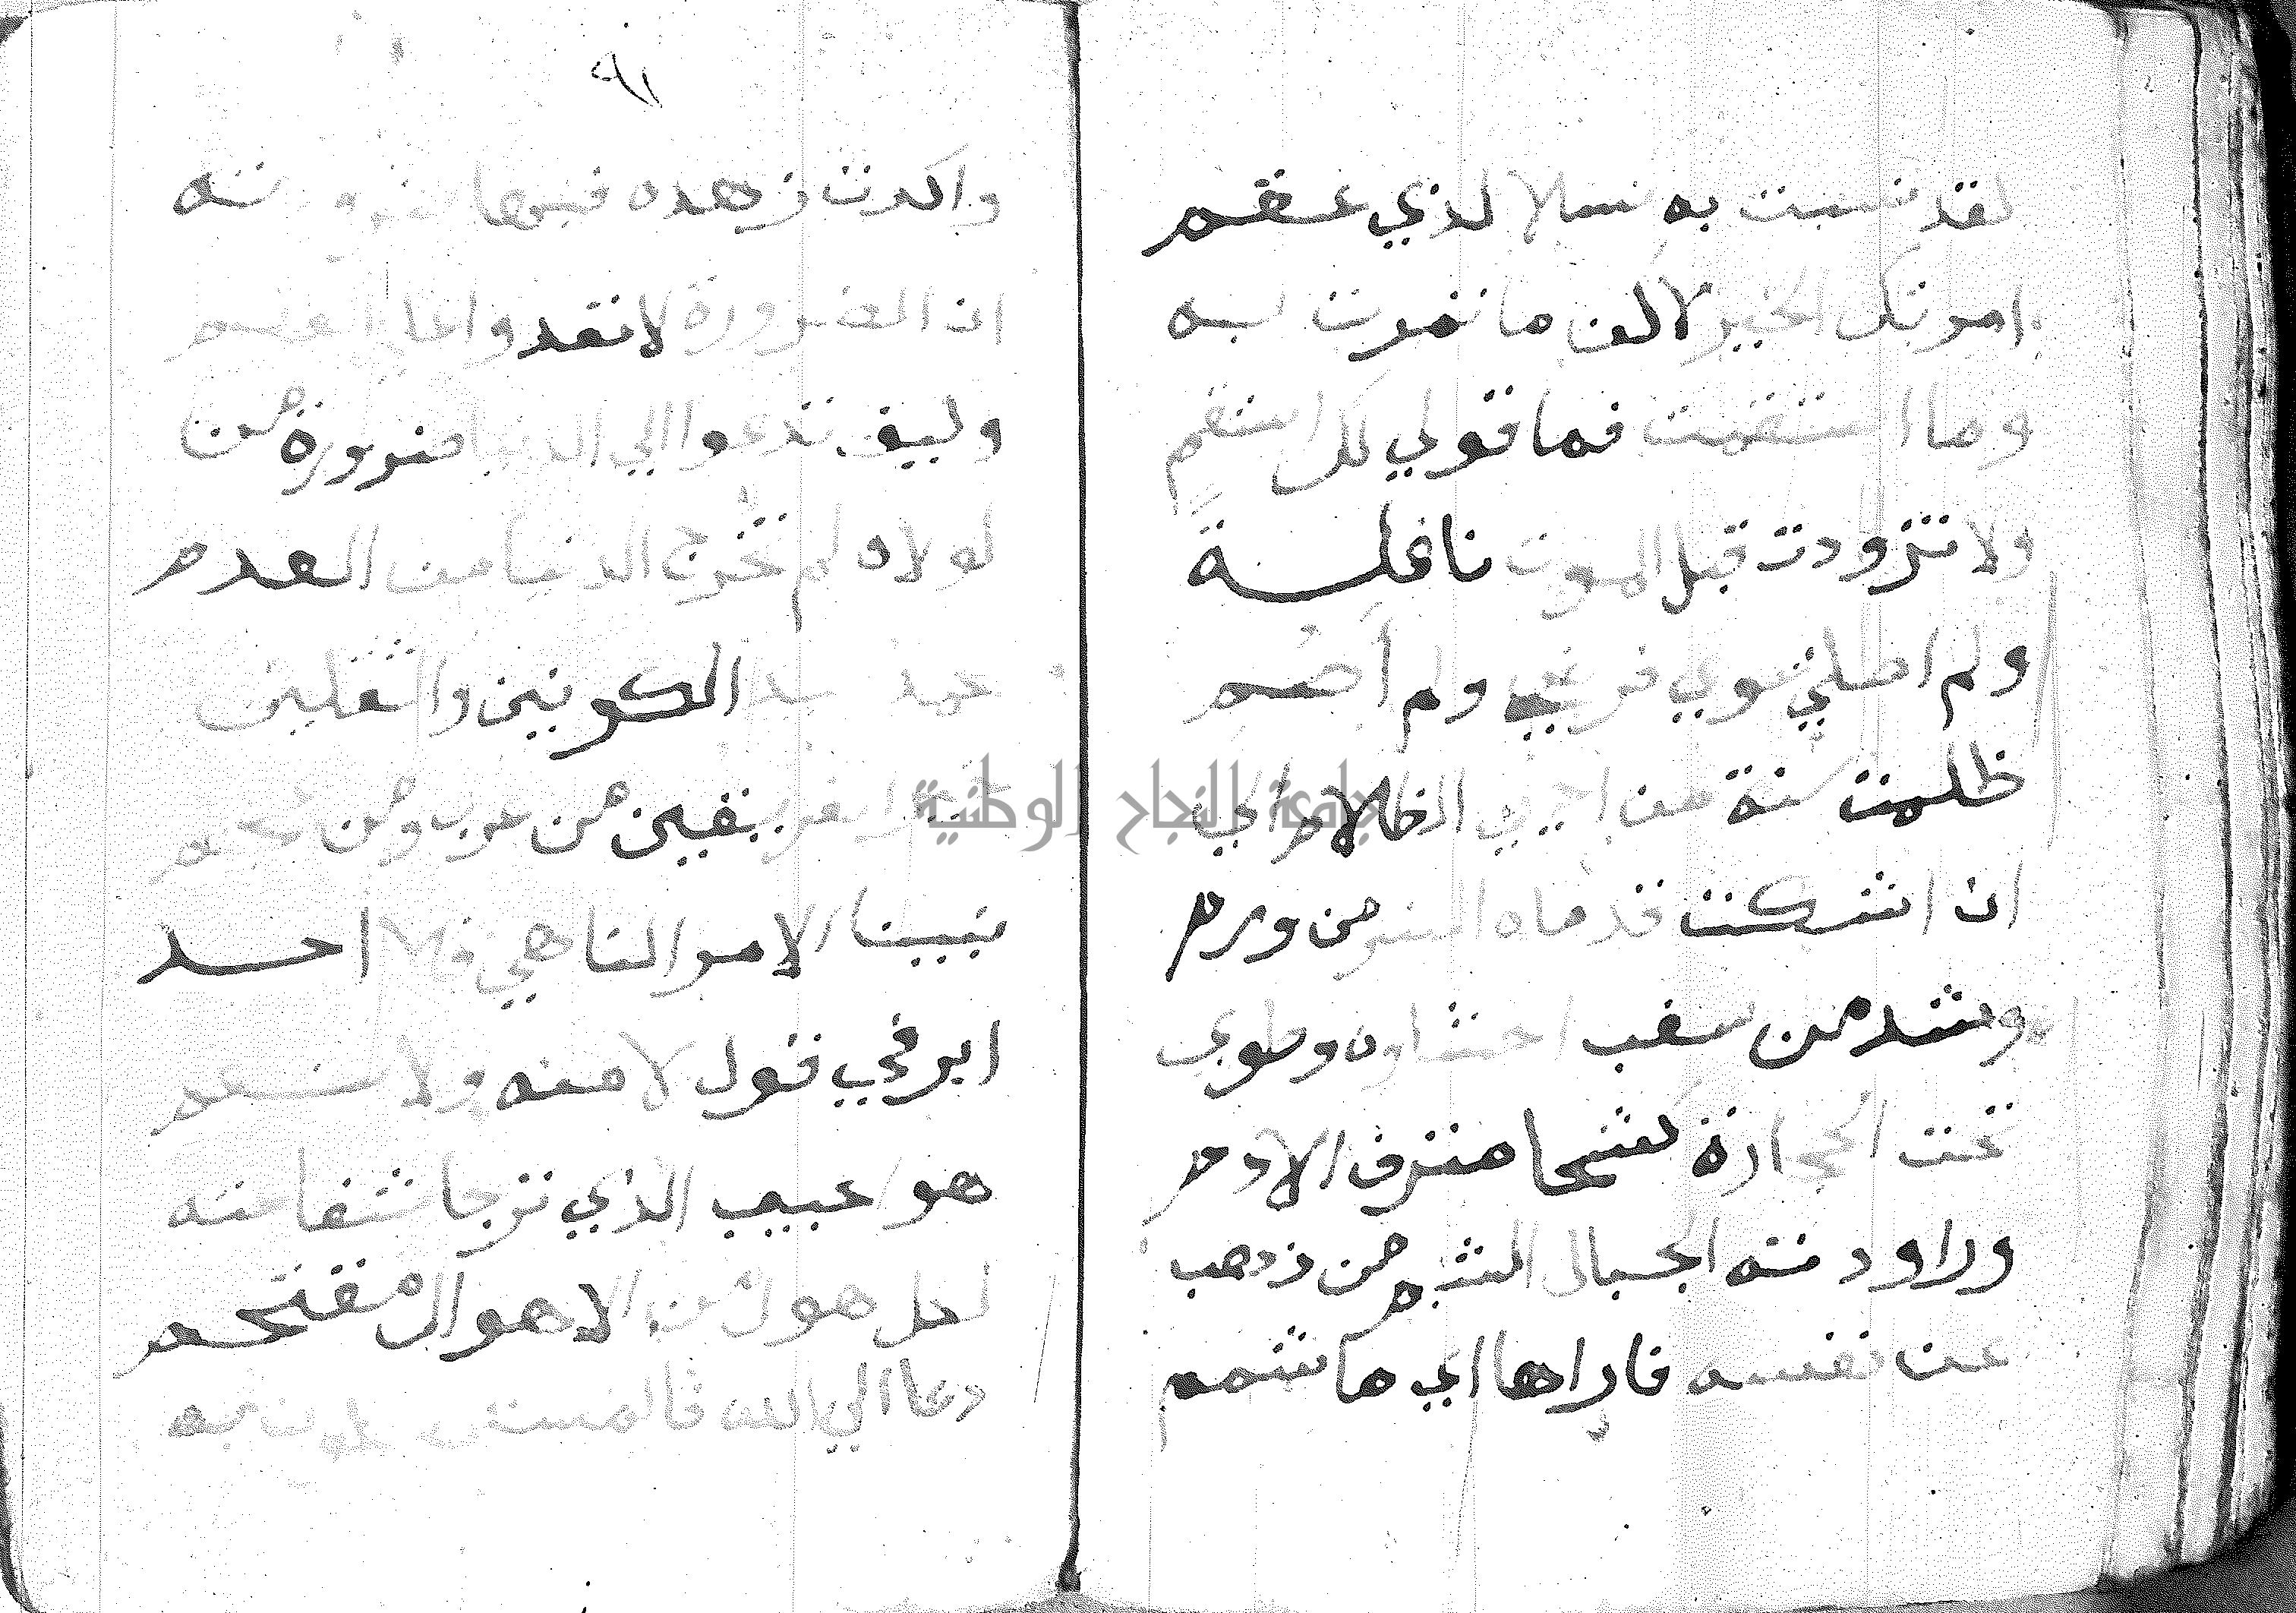 لقد نسبت به نسلا لذي عقم
امرتك الخير لاكن ما تمرت به
وما استقمت فما قولي لك استقم
ولا تزودت قبل الموت نافلة
ولم اصلي سوي فرض ولم أصم
ظلمت سنة من احيي الظلام الي
ان اشتكت قدماه الضر من ورم
وشد من سغب احشاءه وطوي
تحت الحجارة كشحا مترف الادم
وراودته الجبال الشم من ذهب
عن نفسه فاراها اي ما شمم
٩١
واكدت زهده فيها ضرورته
ان الضرورة لا تعدوا علي العصم
وكيف تدعوا الي الدنيا ضرورة من
لولاه لم تخرج الدنيا من العدم
محمد سيد الكونين والثقلين
والفريقين من عرب ومن عجم
نبينا الامر الناهي فلا احد
ابر في قول لا منه ولا نعم
هو الحبيب الذي ترجا شفاعته
لكل هول من الاهوال مقتحم
دعا الي الله فالمستمسكون به
جامعة النجاح الوطنية